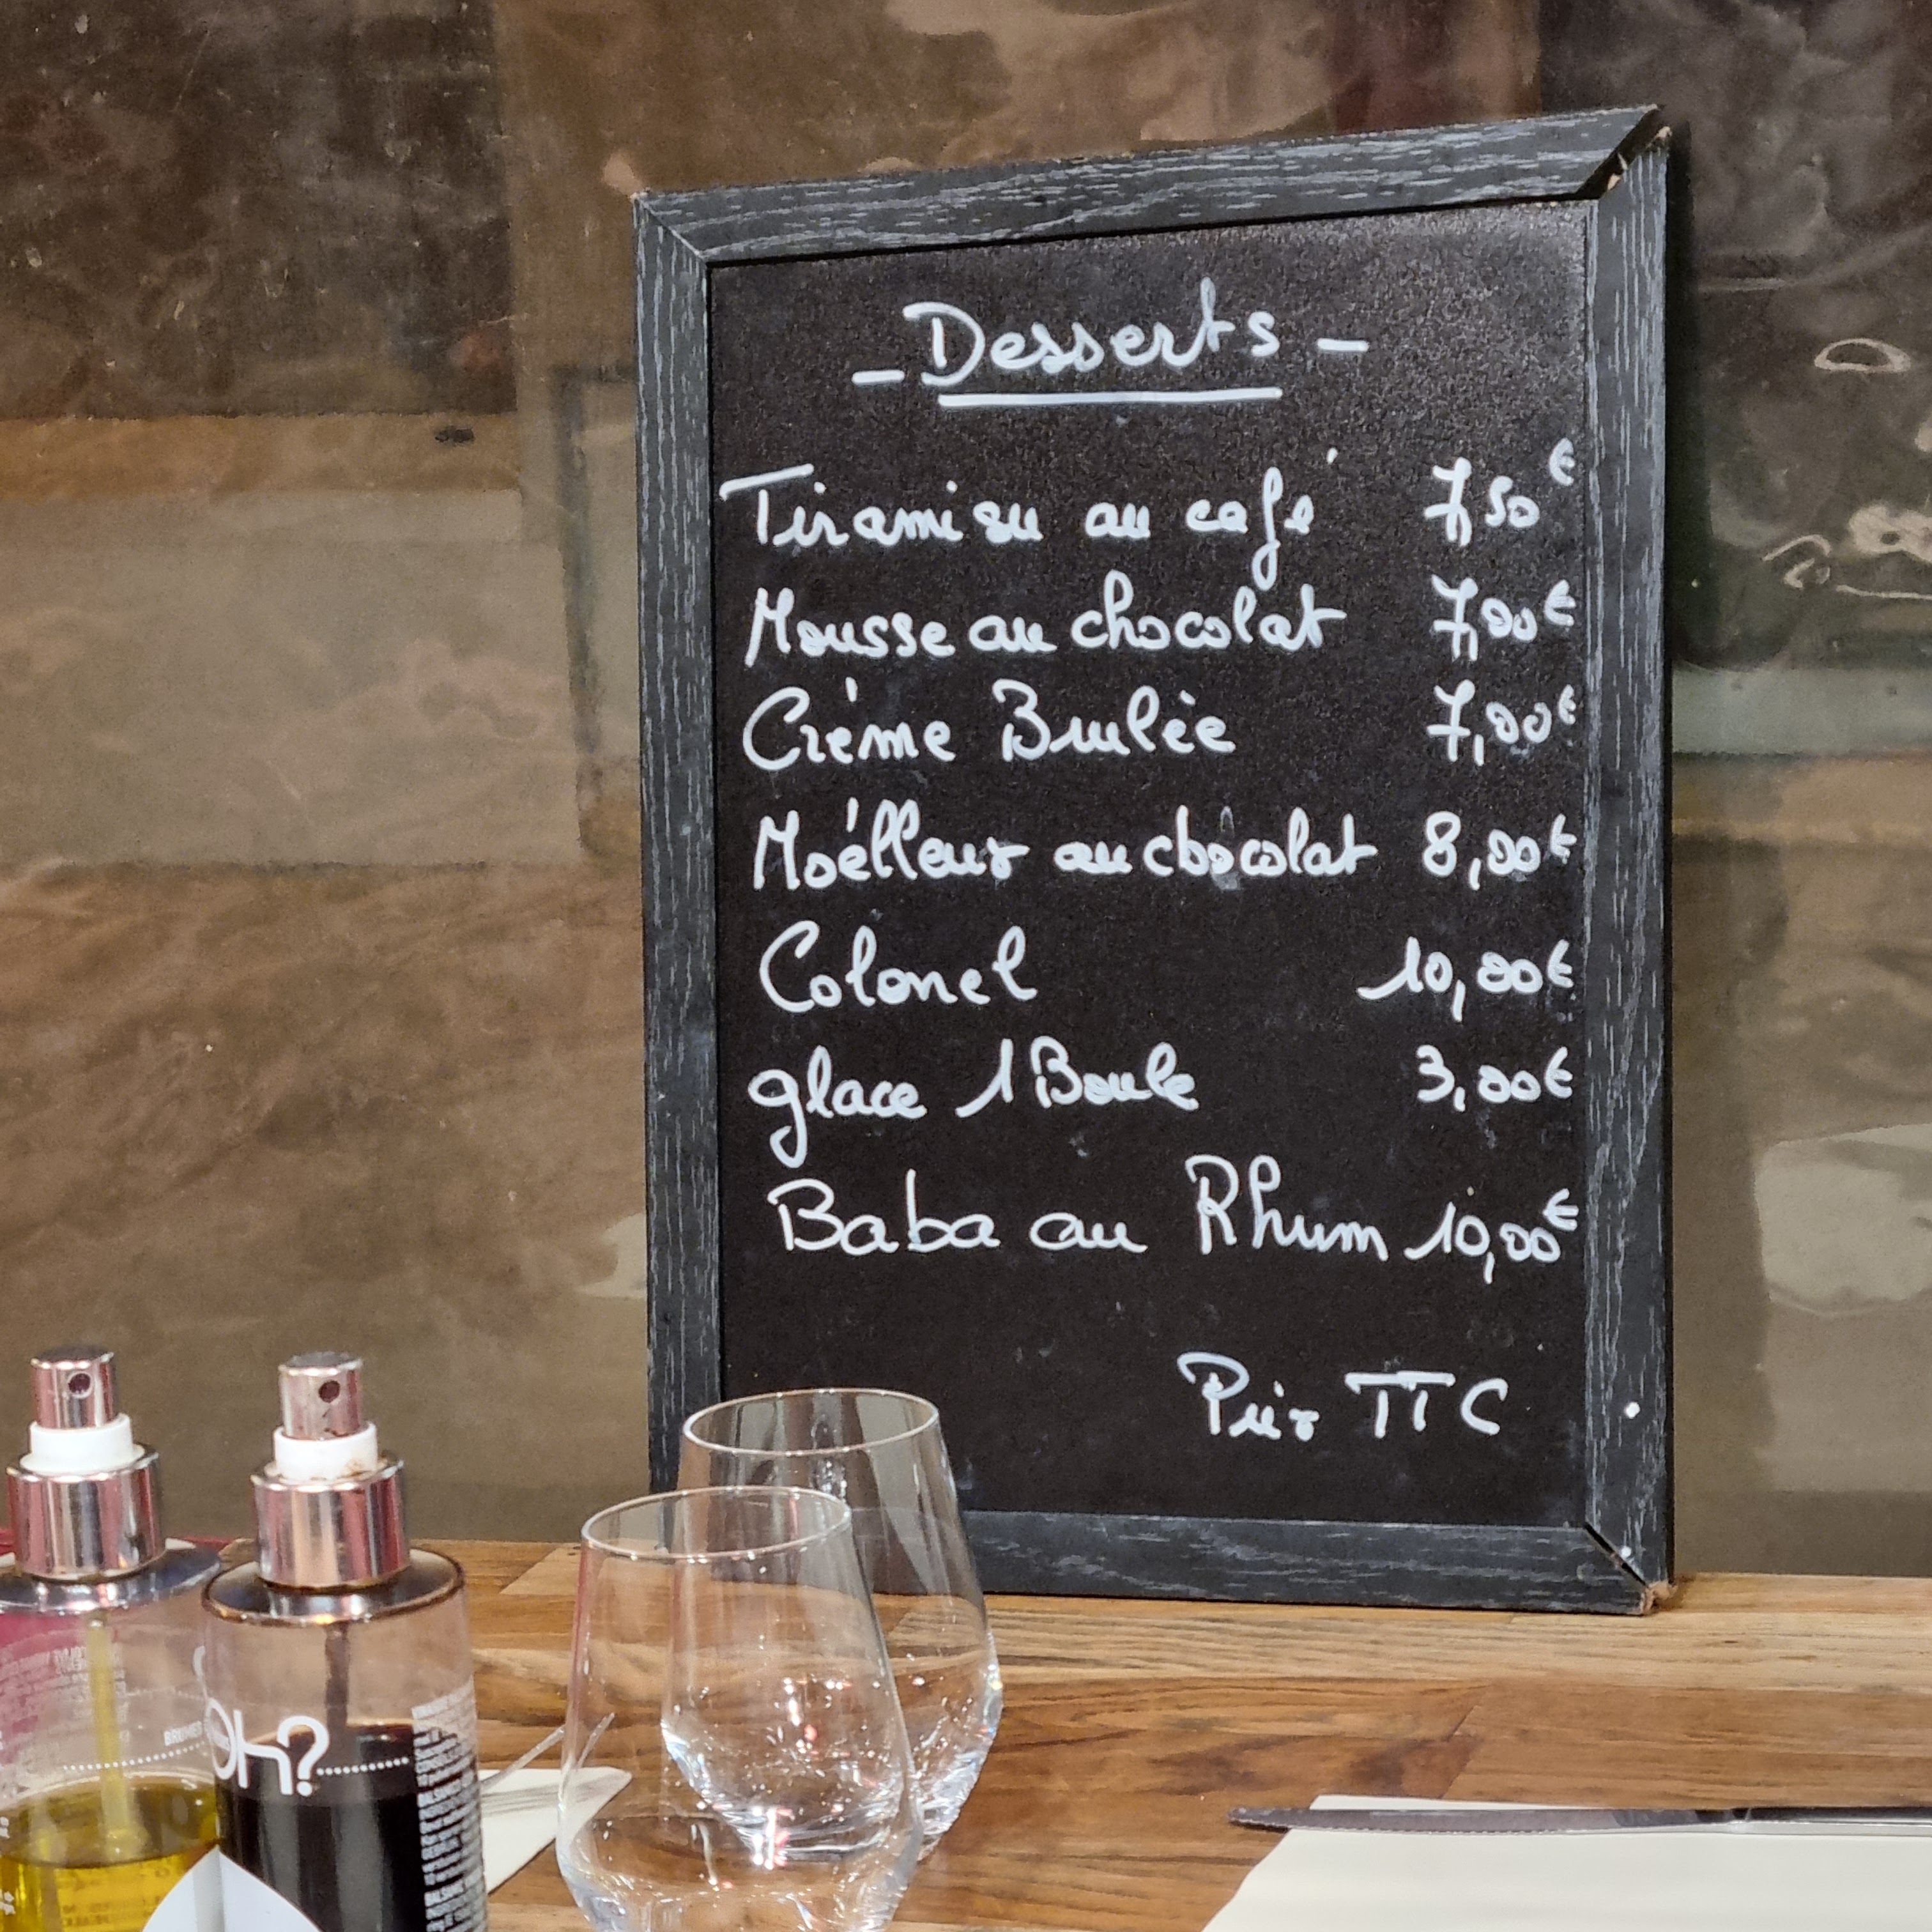 - Desserts -
Tiramisu au café 7,50€
Mousse au chocolat 7,00€
Crème Brulèe 7,00€
Moélleux au chocolat 8,00€
Colonel 10,00€
glace 1 Boule 3,00€
Baba au Rhum 10,00€
Prix TTC
Oh?